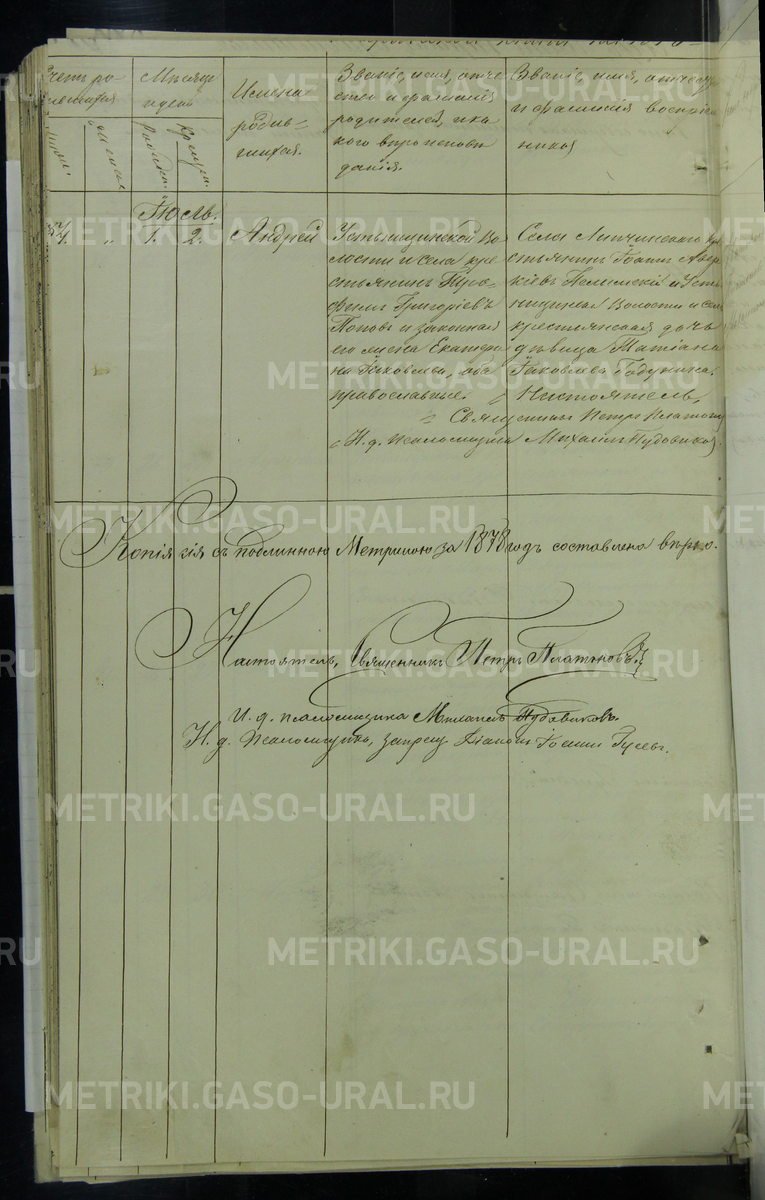 Счетъ ро-
Мѣсяцъ
и день
Имена
родив-
шихся.
Званіе, имя, отче-
ство и фамилія
родителей, и ка-
кого вѣроисповѣ-
данія.
Званіе, имя, отчество
и фамилія воспріем-
никовъ
Іюль.
1. 2.
Андрей
Усть-ницинской Во-
лости и села кре-
стьянинъ
Григоріевъ
Поповъ и законная
его жена Екатери-
на Яковлева, оба
православные.
Села Липчинскаго кре-
стьянинъ Іоаннъ Авер-
кіевъ и Усть-
ницинская Волости и села
крестьянская дочь
дѣвица Татіана
Іаковлева
Настоятель,
Священникъ Петръ Платоновъ
И. д. псаломщика Михаилъ Пудовиковъ.
Копія сія съ подлинною Метрикою за 1878 годъ составлена вѣрно.
Настоятель, Священникъ Петръ Платоновъ
И. д. псаломщика Михаилъ Пудовиковъ.
И. д. Псаломщика, запрещ. Діаконъ Гусевъ.
METRIKI.GASO-URAL.RU